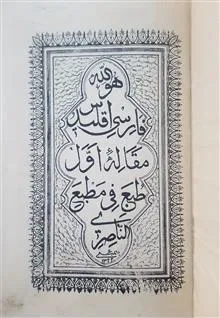 هو الله
فارسی اقلیدس
مقالهٔ اول
طبع فی مطبع
الناصری